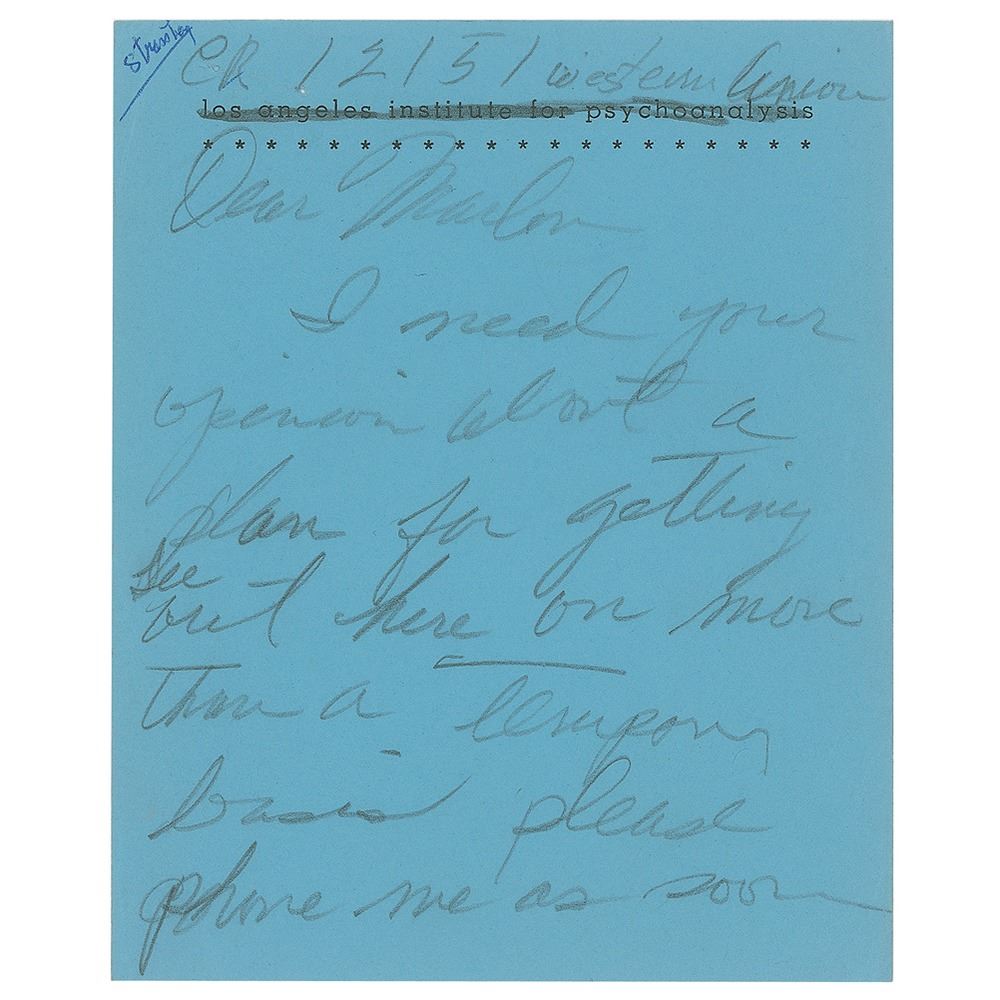 CR 12151 western Union
los angeles institute for psychoanalysis
* * * * * * * * * * * * * * * * * * * *
Dear Marlon
I need your
openion about a
plan for getting
Lee
out here on more
than a tempory
basis please
phone me as soon